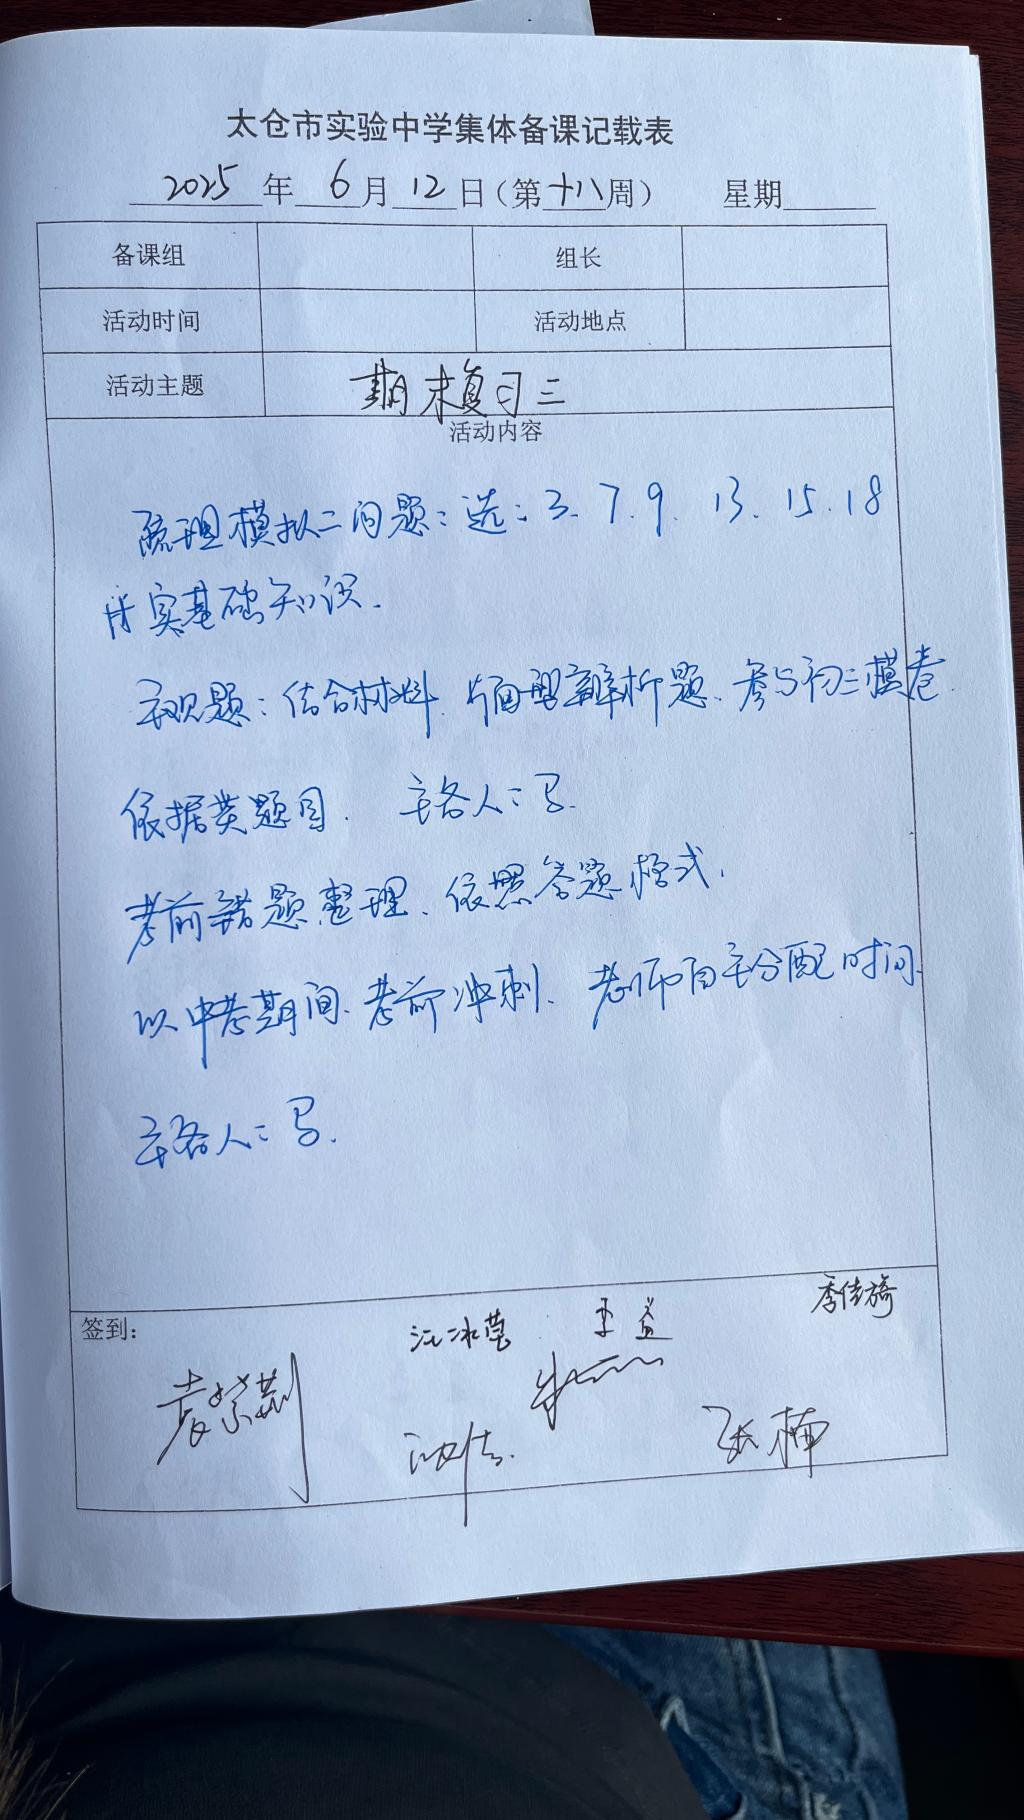 太仓市实验中学集体备课记载表
2025年6月12日(第十八周) 星期
备课组 组长
活动时间 活动地点
活动主题 期末复习三
活动内容
疏理模拟二问题:选:3.7.9.13.15.18
实基础知识.
主观题:结合材料.片面型辨析题.参与初三模卷.
依据类题目. 主备人:
考前错题整理.依照答题格式.
以中考期间.考前冲刺.老师自主分配时间.
主备人:
签到:
汪冰莹 王益 季佳旖
袁紫荆 张楠